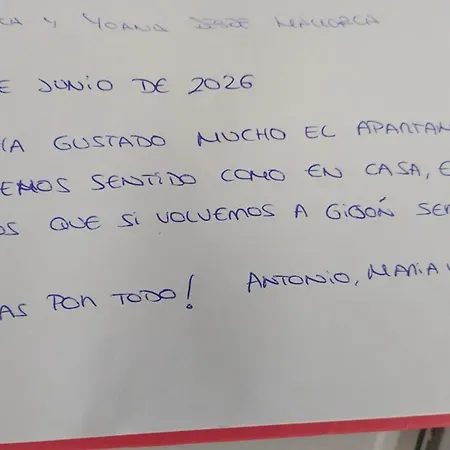 Y YOANA DESDE MALLORCA
E JUNIO DE 2026
HA GUSTADO MUCHO EL APARTAM
EMOS SENTIDO COMO EN CASA, E
OS QUE SI VOLVEMOS A GIJÓN SER
AS POR TODO! ANTONIO, MARIA Y